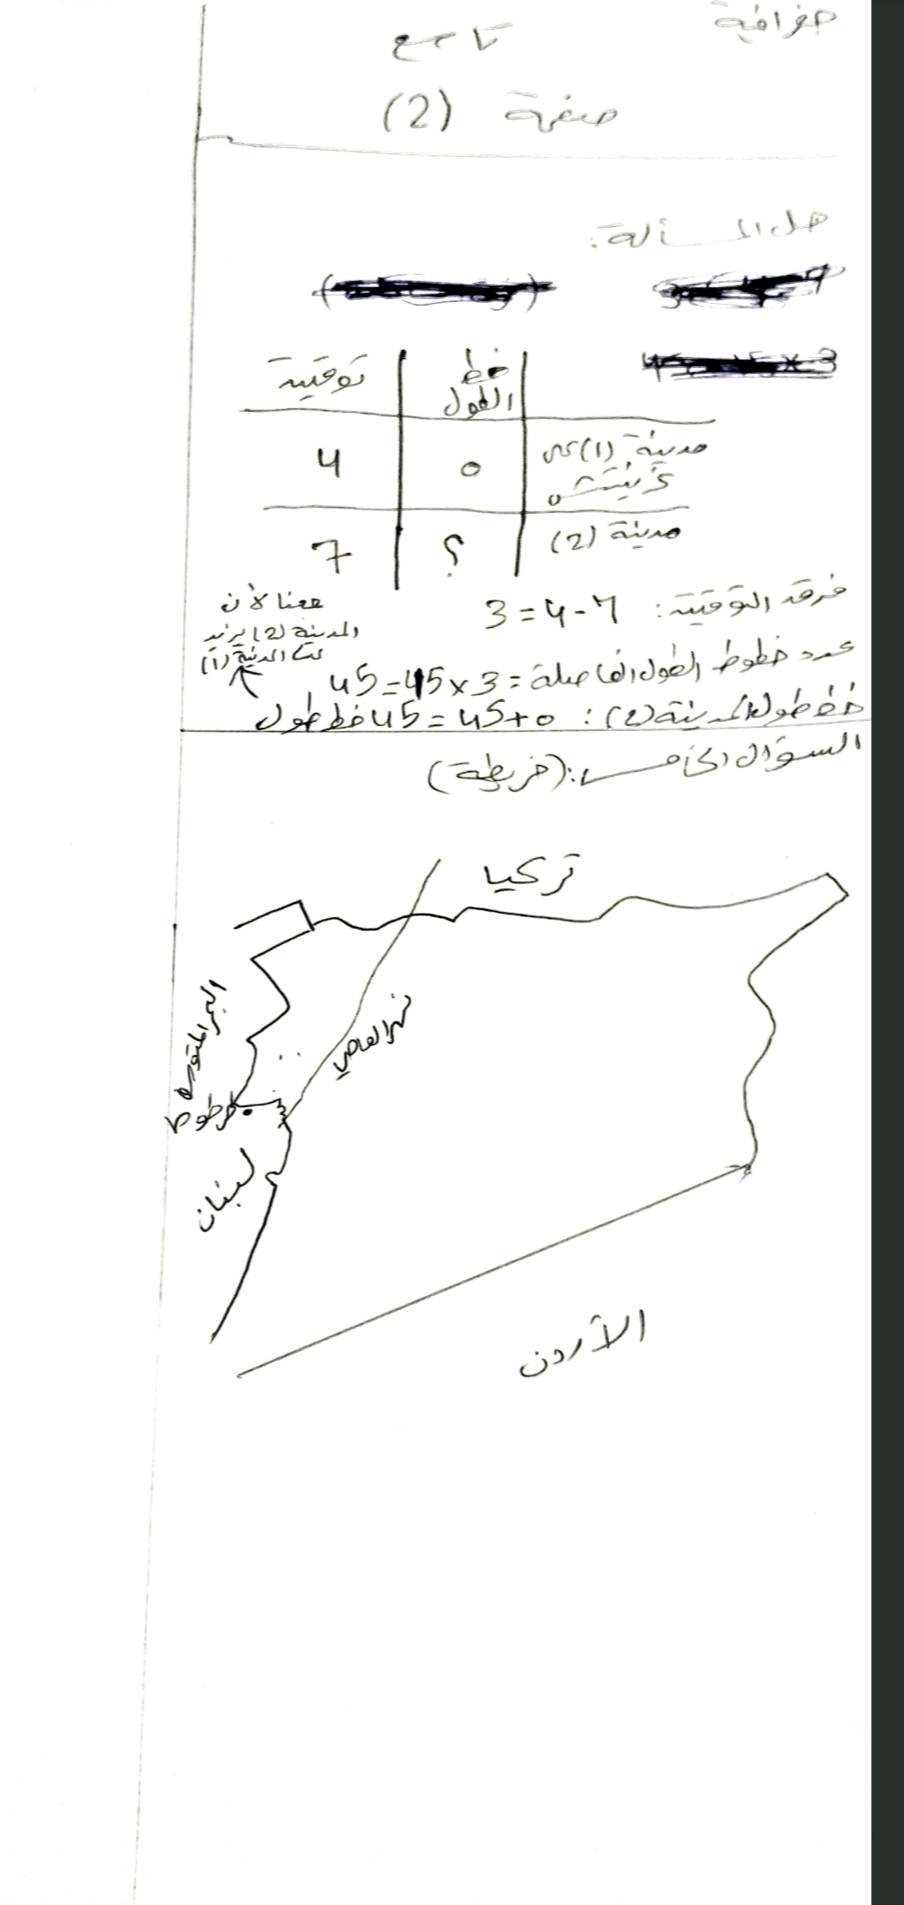 جغرافية
تاسع
صفحة (2)
حل المسألة:
خط الطول
توقيت
مدينة (1)
غرينتش
0
4
مدينة (2)
؟
7
فرق التوقيت: 7-4=3
جمعنا لأن
المدينة (2)
المدينة (1)
عدد خطوط الطول الفاصلة = 3×15=45
خط طول المدينة (2): 0+45=45 خط طول
السؤال الخامس: (خريطة)
تركيا
البحر المتوسط
نهر العاصي
طرطوس
لبنان
الأردن